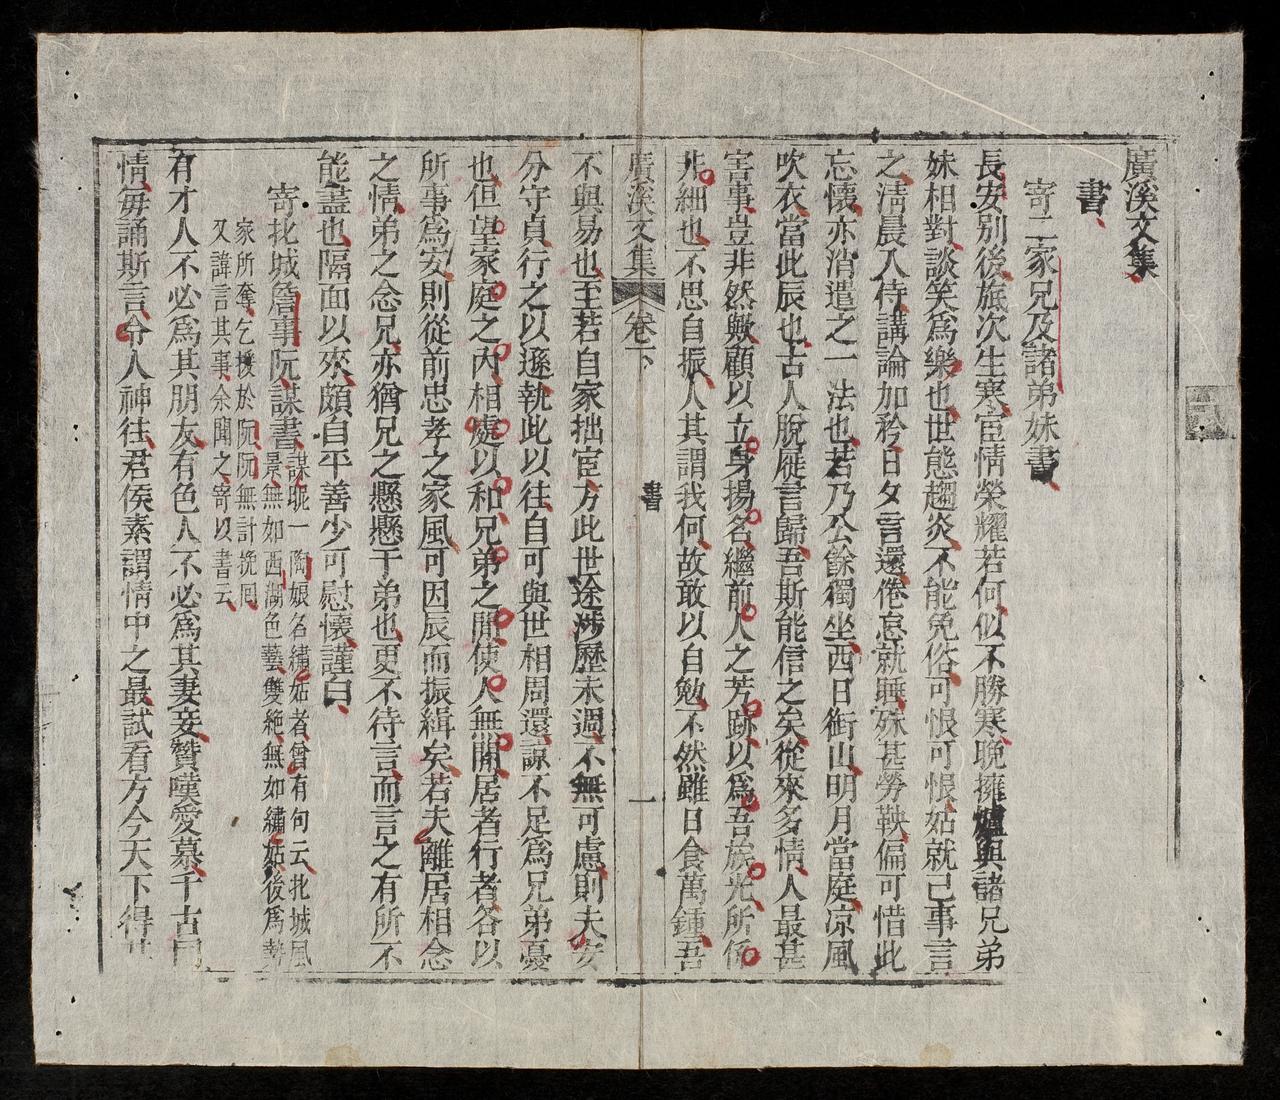 廣溪文集
書
寄二家兄及諸弟妹書
長安別後旅次生寒宦情榮耀若何似不勝寒晚擁爐與諸兄弟
妹相對談笑爲樂也世態趨炎不能免俗可恨可恨姑就己事言
之淸晨入侍講論加矜日夕言還倦怠就睡殊甚勞鞅偏可惜此
忘懷亦消遣之一法也若乃公餘獨坐西日銜山明月當庭凉風
吹衣當此辰也古人脫屣言歸吾斯能信之矣從來多情人最甚
害事豈非然歟顧以立身揚名繼前人之芳跡以爲吾族光所係
非細也不思自振人其謂我何故敢以自勉不然雖日食萬鍾吾
廣溪文集 卷下 書 一
不與易也至若自家拙宦方此世途涉歷未週不無可慮則夫安
分守貞行之以遜執此以往自可與世相周還諒不足爲兄弟憂
也但望家庭之內相處以和兄弟之間使人無閒居者行者各以
所事爲安則從前忠孝之家風可因辰而振緝矣若夫離居相念
之情弟之念兄亦猶兄之懸懸于弟也更不待言而言之有所不
能盡也隔面以來頗自平善少可慰懷謹白
寄北城詹事阮謀書 謀昵一陶娘名繡姑者曾有句云北城風
景無如西湖色藝雙絶無如繡姑後爲勢
家所奪乞援於阮阮無計挽回
又諱言其事余聞之寄以書云
有才人不必爲其朋友有色人不必爲其妻妾贊嘆愛慕千古同
情每誦斯言令人神往君侯素謂情中之最試看方今天下得其